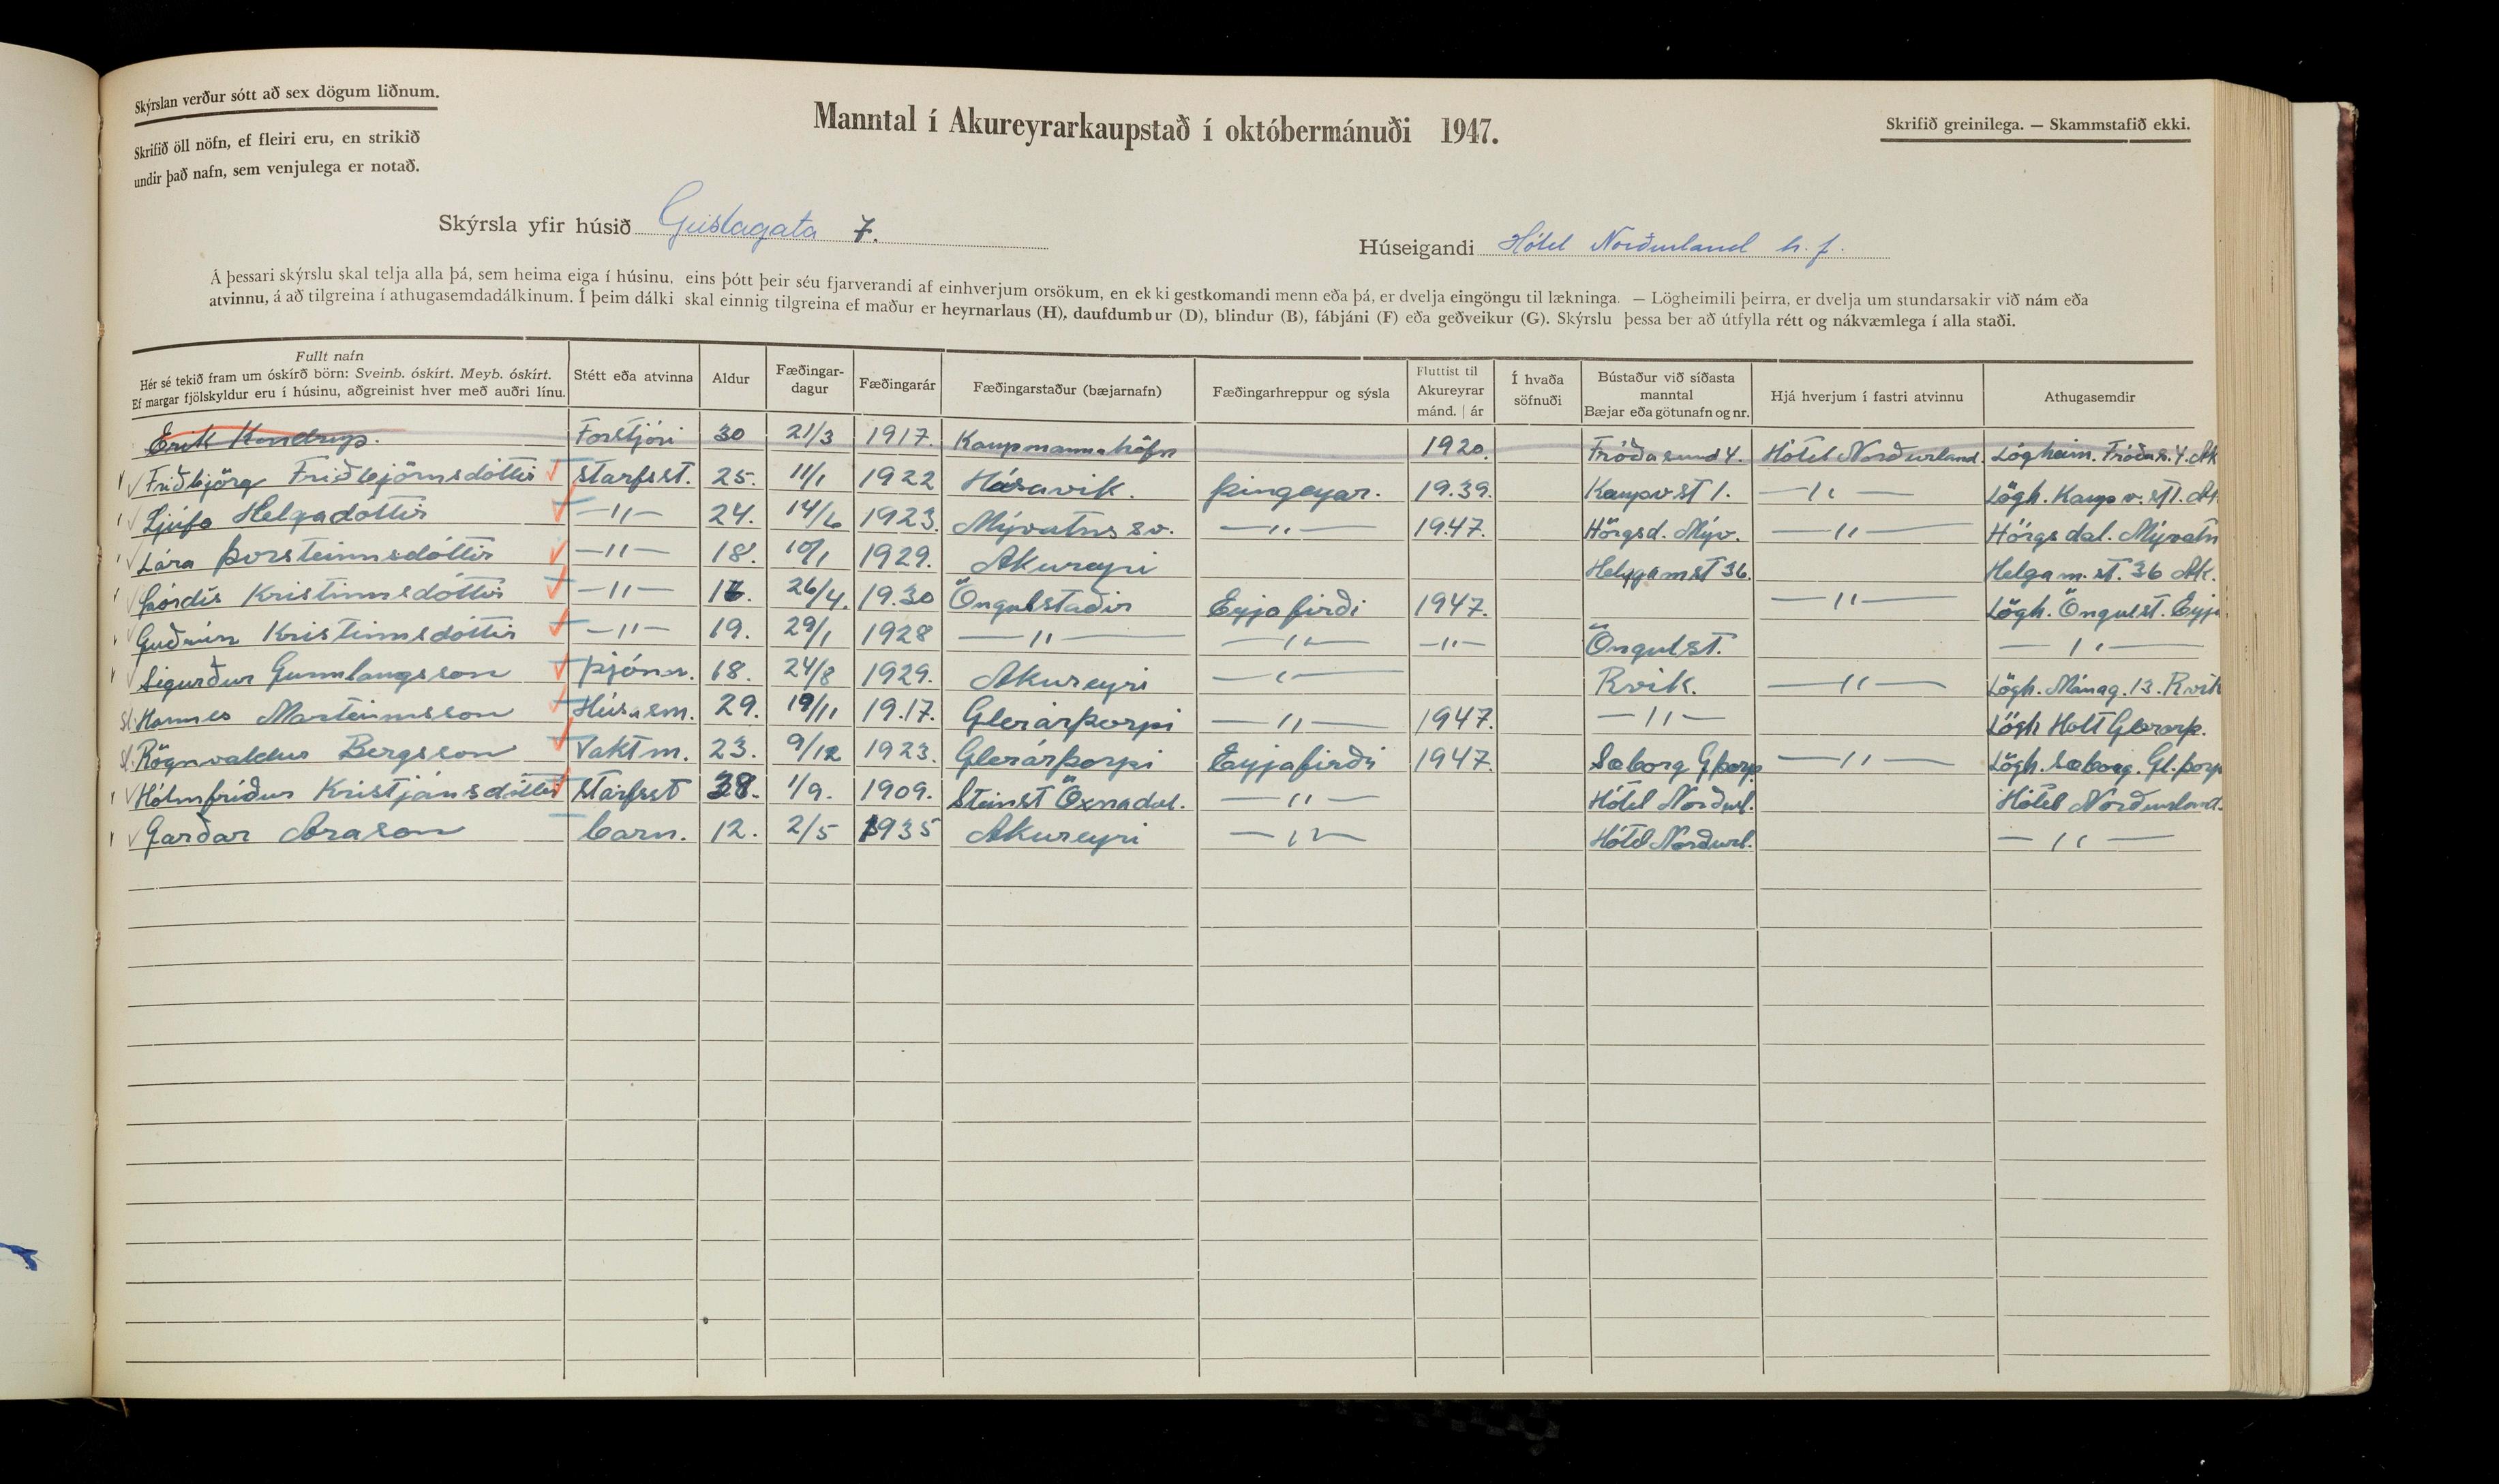 Skýrslan verður sótt að sex dögum liðnum.
Skrifið öll nöfn, ef fleiri eru, en strikið
undir það nafn, sem venjulega er notað.
Manntal í Akureyrarkaupstað í októbermánuði 1947.
Skrifið greinilega. — Skammstafið ekki.
Skýrsla yfir húsið Geislagata 7.
Húseigandi Hótel Norðurland h. f.
Á þessari skýrslu skal telja alla þá, sem heima eiga í húsinu, eins þótt þeir séu fjarverandi af einhverjum orsökum, en ekki gestkomandi menn eða þá, er dvelja eingöngu til lækninga. — Lögheimili þeirra, er dvelja um stundarsakir við nám eða
atvinnu, á að tilgreina í athugasemdadálkinum. Í þeim dálki skal einnig tilgreina ef maður er heyrnarlaus (H), daufdumbur (D), blindur (B), fábjáni (F) eða geðveikur (G). Skýrslu þessa ber að útfylla rétt og nákvæmlega í alla staði.
Fullt nafn
Hér sé tekið fram um óskírð börn: Sveinb. óskírt. Meyb. óskírt.
Ef margar fjölskyldur eru í húsinu, aðgreinist hver með auðri línu.
Stétt eða atvinna
Aldur
Fæðingar-
dagur
Fæðingarár
Fæðingarstaður (bæjarnafn)
Fæðingarhreppur og sýsla
Fluttist til
Akureyrar
mánd. | ár
Í hvaða
söfnuði
Bústaður við síðasta
manntal
Bæjar eða götunafn og nr.
Hjá hverjum í fastri atvinnu
Athugasemdir
Erik Kondrup. Forstjóri 30 21/3 1917. Kaupmannahöfn 1920. Fróðasund 4. Hótel Norðurland. Lögheim. Fróðas. 4. Ak
Friðbjörg Friðbjörnsdóttir starfsst. 25. 11/1 1922 Húsavik. Þingeyar. 19.39. Kaupv st 1. —〃— Lögh. Kaupv. st 1. Ak
Ljúfa Helgadóttir —〃— 24. 14/6 1923. Mývatnssv. —〃— 1947. Hörgsd. Mýv. —〃— Hörgsdal. Mývatn
Lára Þorsteinnsdóttir —〃— 18. 10/1 1929. Akureyri Helgamst 36. Helgam. st. 36 Ak.
Þórdís Kristinnsdóttir —〃— 26/4. 19.30 Öngulstaðir Eyjafirði 1947. —〃— Lögh. Öngulst. Eyja
Guðrún Kristinnsdóttir —〃— 19. 29/1 1928 —〃— —〃— —〃— Öngulst. —〃—
Sigurður Gunnlaugsson Þjónn. 18. 24/8 1929. Akureyri —〃— Rvik. —〃— Lögh. Mánag. 13. Rvik
sl. Hannes Marteinnsson Húsasm. 29. 19/11 19.17. Glerárþorpi —〃— 1947. —〃— Lögh Holt Glerarþ.
sl. Rögnvaldur Bergsson Vaktm. 23. 9/12 1923. Glerárþorpi Eyjafirði 1947. Sæborg Gþorp —〃— Lögh. Sæborg. Gl.þorp
Hólmfríður Kristjánsdóttir starfsst 38. 1/9. 1909. Steinst Öxnadal. —〃— Hótel Norðurl. Hótel Norðurland.
Garðar Arason barn. 12. 2/5 1935 Akureyri —〃— Hótel Norðurl. —〃—